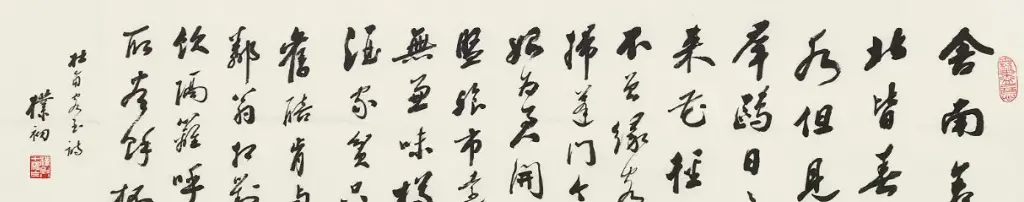 舍南舍
北皆春
水但見
羣鷗日
來花徑
不曾緣客
掃蓬門今
始為君開
盤飧市遠
無兼味樽
酒家貧只
舊醅肯與
鄰翁相對
飲隔籬呼
取盡餘杯
杜甫客至詩
樸初